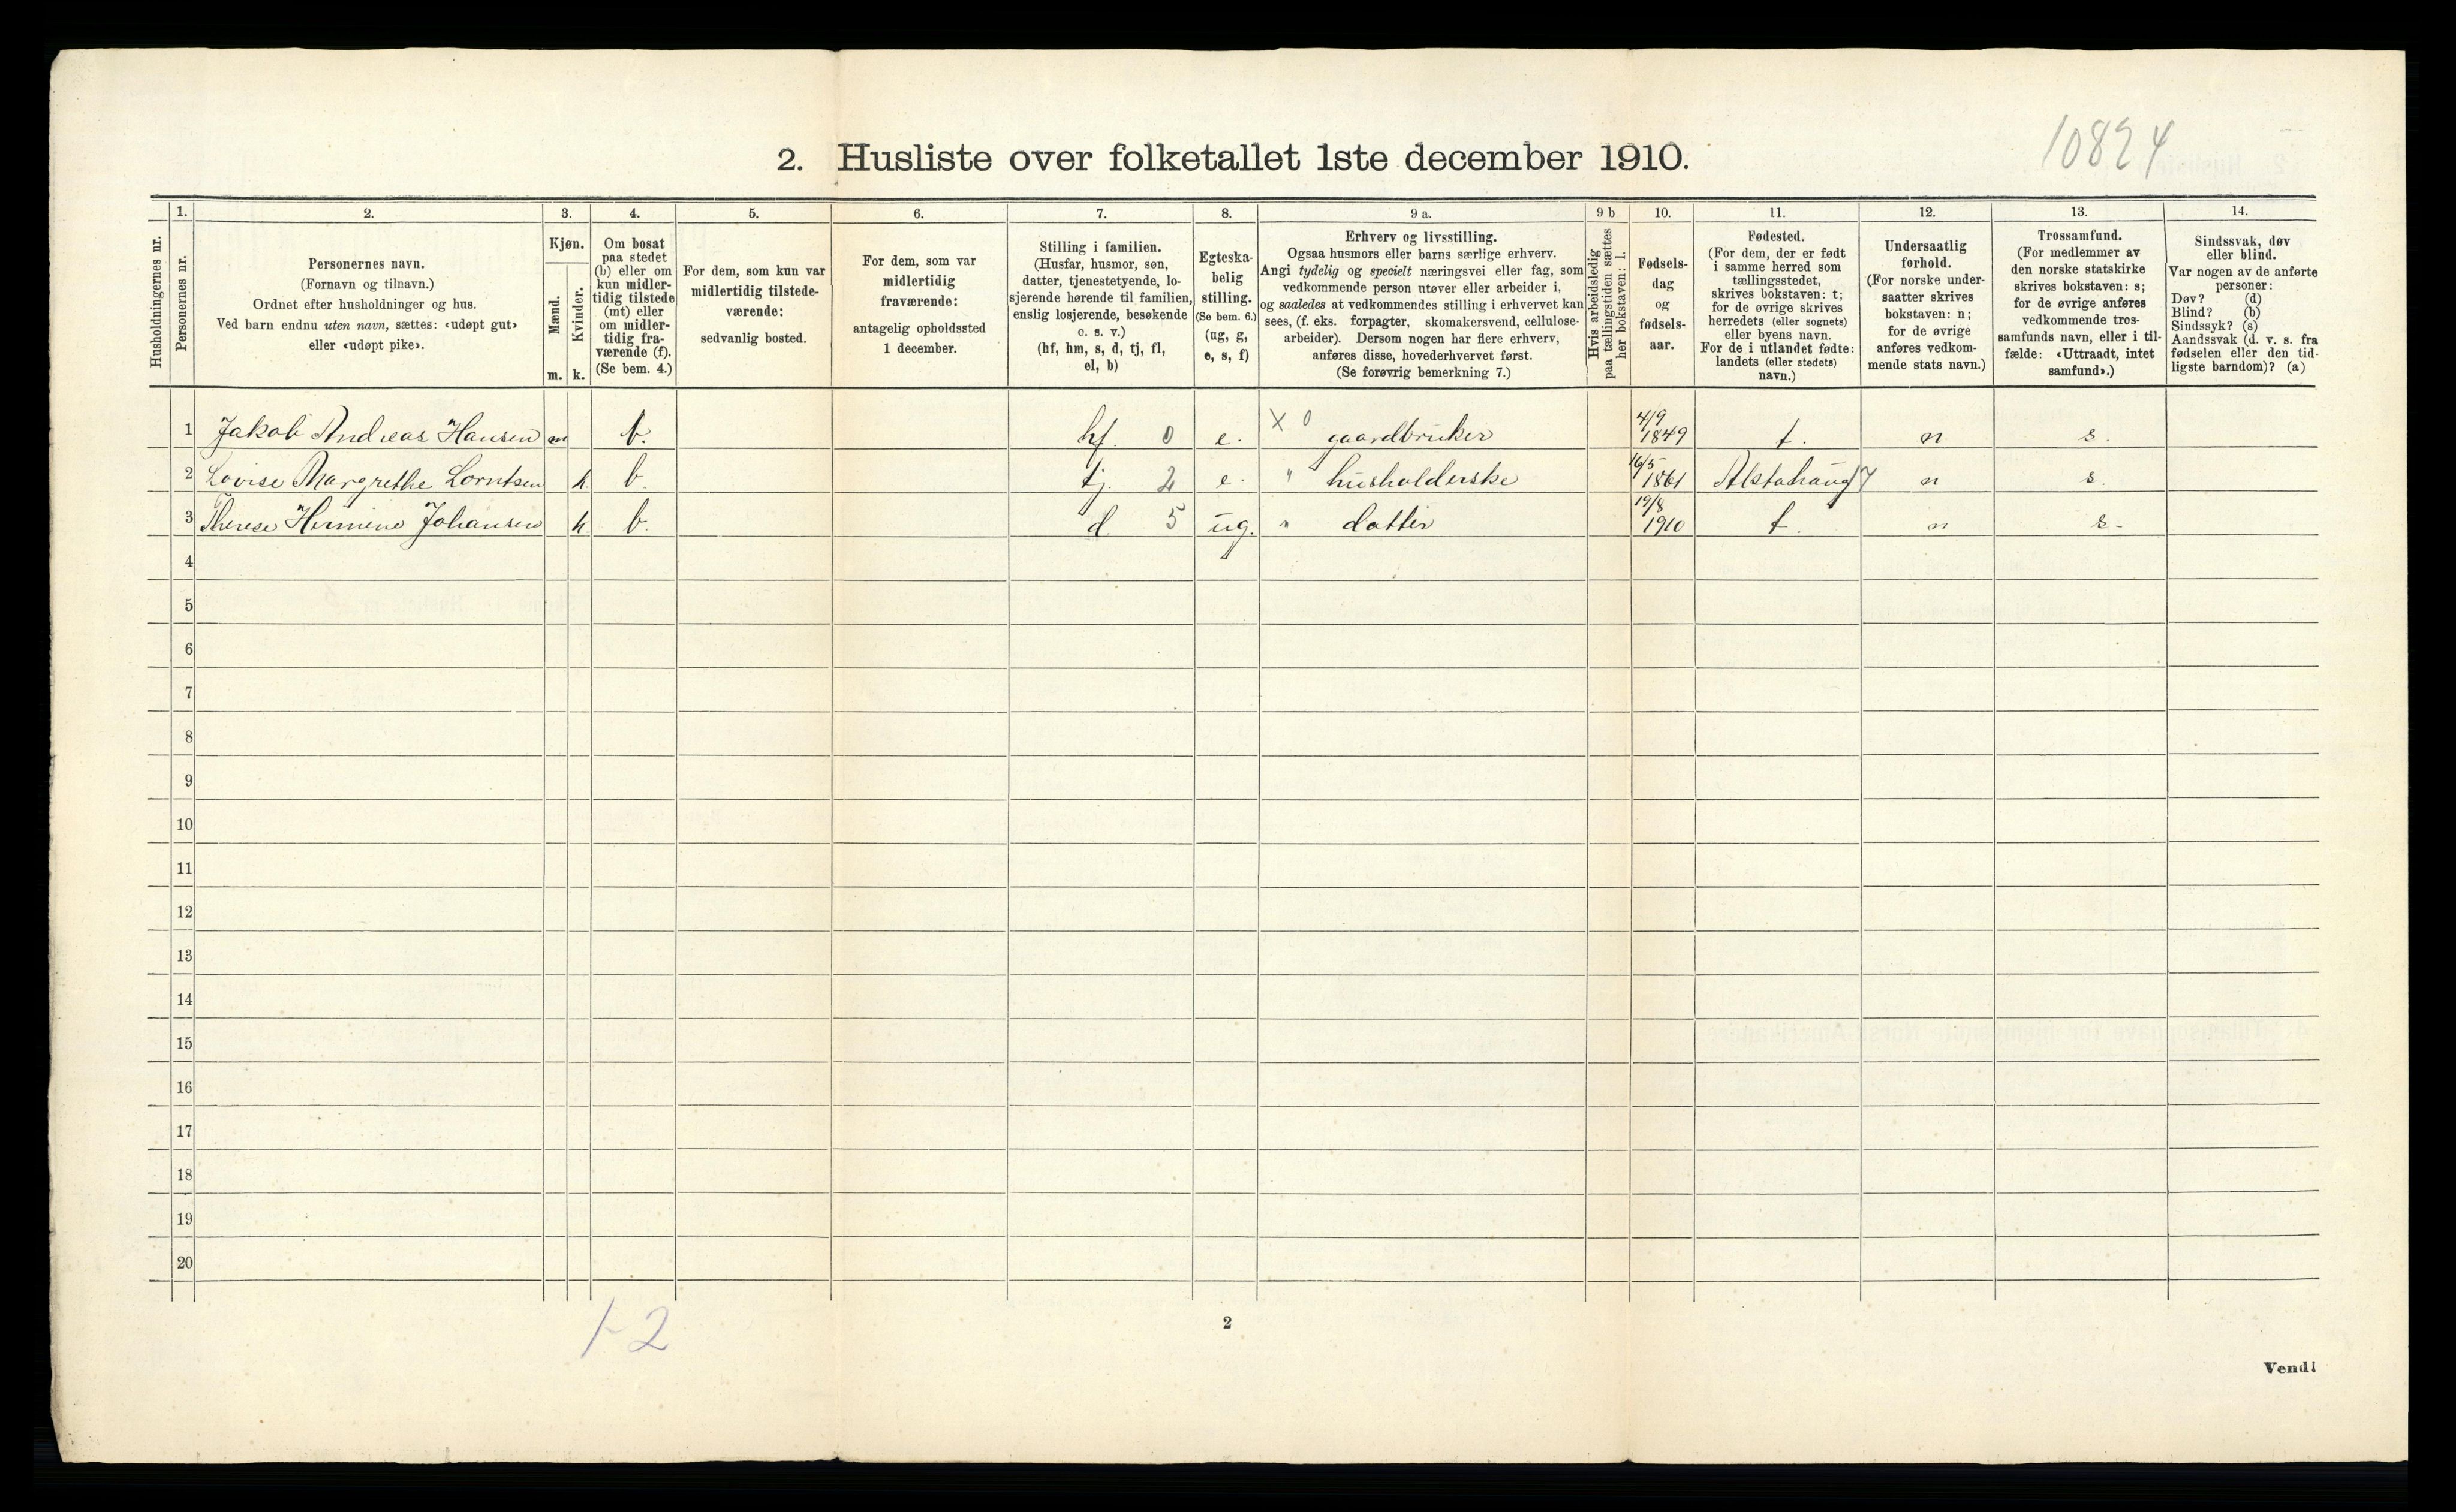 10824
2. Husliste over folketallet 1ste december 1910.
Husholdningernes nr.
1.
Personernes nr.
2.
Personernes navn.
(Fornavn og tilnavn.)
Ordnet efter husholdninger og hus.
Ved barn endnu uten navn, sættes: «udøpt gut»
eller «udøpt pike».
3.
Kjøn.
Mænd.
Kvinder.
m. k.
4.
Om bosat
paa stedet
(b) eller om
kun midler-
tidig tilstede
(mt) eller
om midler-
tidig fra-
værende (f).
(Se bem. 4.)
5.
For dem, som kun var
midlertidig tilstede-
værende:
sedvanlig bosted.
6.
For dem, som var
midlertidig
fraværende:
antagelig opholdssted
1 december.
7.
Stilling i familien.
(Husfar, husmor, søn,
datter, tjenestetyende, lo-
sjerende hørende til familien,
enslig losjerende, besøkende
o. s. v.)
(hf, hm, s, d, tj, fl,
el, b)
8.
Egteska-
belig
stilling.
(Se bem. 6.)
(ug, g,
e, s, f)
9 a.
Erhverv og livsstilling.
Ogsaa husmors eller barns særlige erhverv.
Angi tydelig og specielt næringsvei eller fag, som
vedkommende person utøver eller arbeider i,
og saaledes at vedkommendes stilling i erhvervet kan
sees, (f. eks. forpagter, skomakersvend, cellulose-
arbeider). Dersom nogen har flere erhverv,
anføres disse, hovederhvervet først.
(Se forøvrig bemerkning 7.)
9 b
Hvis arbeidsledig
paa tællingstiden sættes
her bokstaven: l.
10.
Fødsels-
dag
og
fødsels-
aar.
11.
Fødested.
(For dem, der er født
i samme herred som
tællingsstedet,
skrives bokstaven: t;
for de øvrige skrives
herredets (eller sognets)
eller byens navn.
For de i utlandet fødte:
landets (eller stedets)
navn.)
12.
Undersaatlig
forhold.
(For norske under-
saatter skrives
bokstaven: n;
for de øvrige
anføres vedkom-
mende stats navn.)
13.
Trossamfund.
(For medlemmer av
den norske statskirke
skrives bokstaven: s;
for de øvrige anføres
vedkommende tros-
samfunds navn, eller i til-
fælde: «Uttraadt, intet
samfund».)
14.
Sindssvak, døv
eller blind.
Var nogen av de anførte
personer:
Døv? (d)
Blind? (b)
Sindssyk? (s)
Aandssvak (d. v. s. fra
fødselen eller den tid-
ligste barndom)? (a)
1 Jakob Andreas Hansen m b. hf. 0 e. X 0 gaardbruker 4/9 1849 t. n s.
2 Lovise Margrethe Lorntsen k b. tj. 2 e. " husholderske 16/5 1861 Alstahaug 7 n s.
3 Therese Hermine Johansen k b. d. 5 ug. " datter 19/8 1910 t. n s.
4
5
6
7
8
9
10
11
12
13
14
15
16
17
18
19
20
1-2
2
Vend!